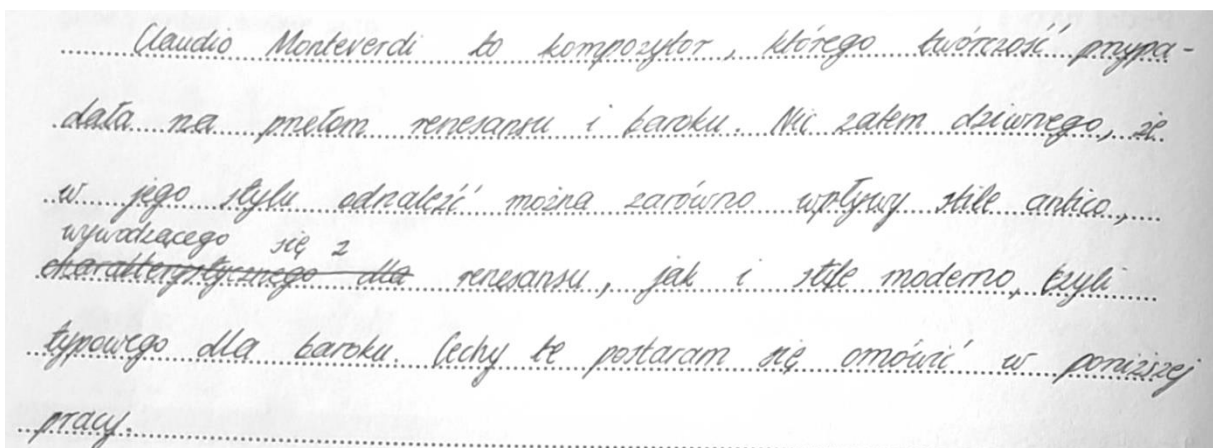 Claudio Monteverdi to kompozytor, którego twórczość przypa-
dała na przełom renesansu i baroku. Nic zatem dziwnego, że
w jego stylu odnaleźć można zarówno wpływy stile antico,
wywodzącego się z
charakterystycznego dla renesansu, jak i stile moderno, czyli
typowego dla baroku. Cechy te postaram się omówić w poniższej
pracy.